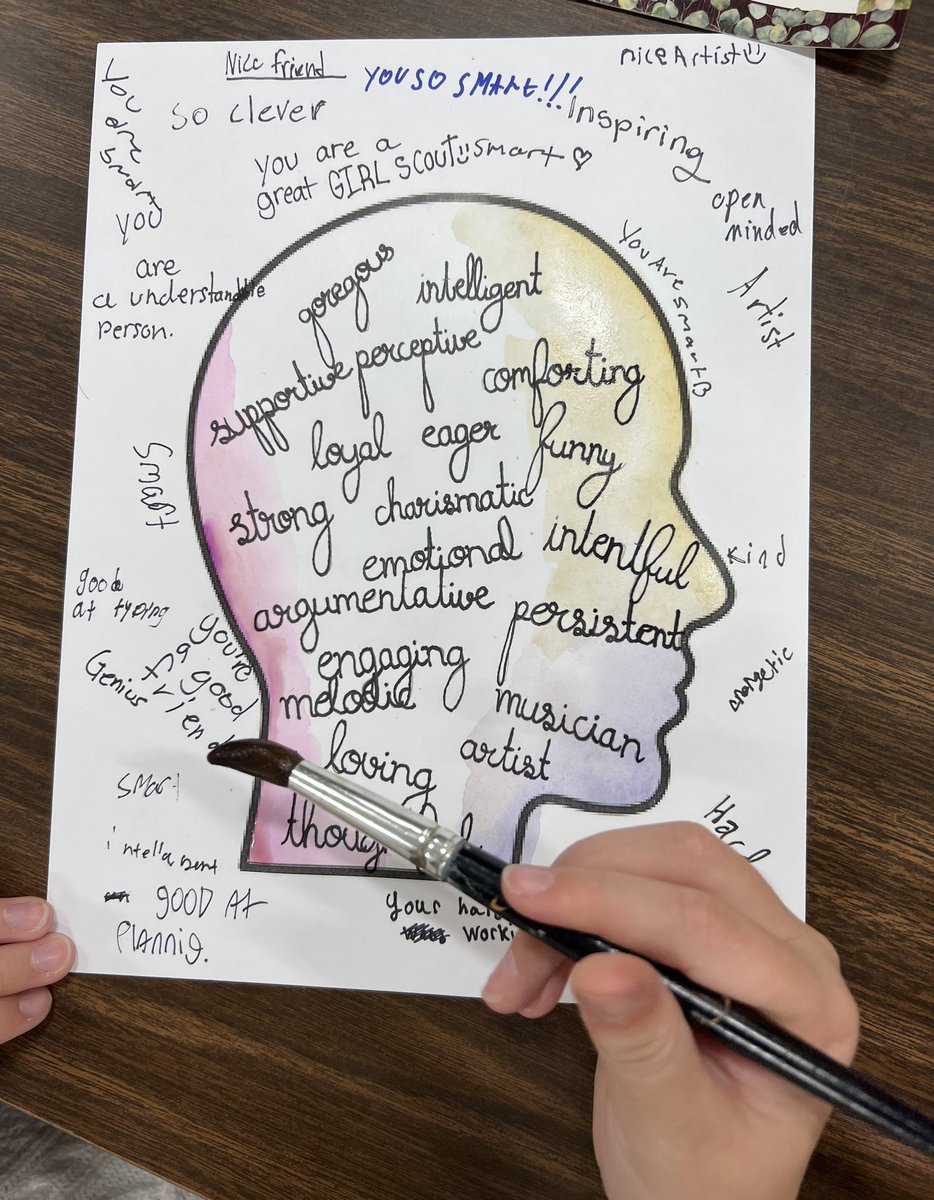 Nice friend
YOU SO SMART!!!
nice Artist
so clever
Inspiring
You are
smart
you are a
great GIRL SCOUT smart
open
minded
you
are
a understandable
person.
You Are smart
Artist
goregous
intelligent
supportive
perceptive
comforting
loyal
eager
funny
strong
charismatic
emotional
intentful
argumentative
persistent
engaging
melodic
musician
loving
artist
smart
kind
good
at typing
you're
a good
friend
Genius
energetic
smart
intellagent
GOOD At
Plannig.
your